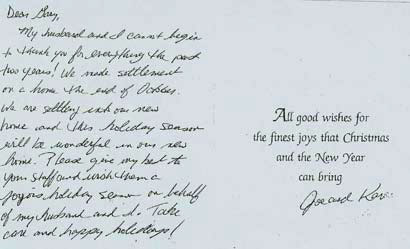 Dear Gary,
My husband and I can't begin
to thank you for everything the past
two years! We made settlement
on a home the end of October.
We are settling into our new
home and this holiday season
will be wonderful in our new
home. Please give my best to
your staff and wish them a
joyous holiday season on behalf
of my husband and I. Take
care and happy holidays!
All good wishes for
the finest joys that Christmas
and the New Year
can bring
Joe and